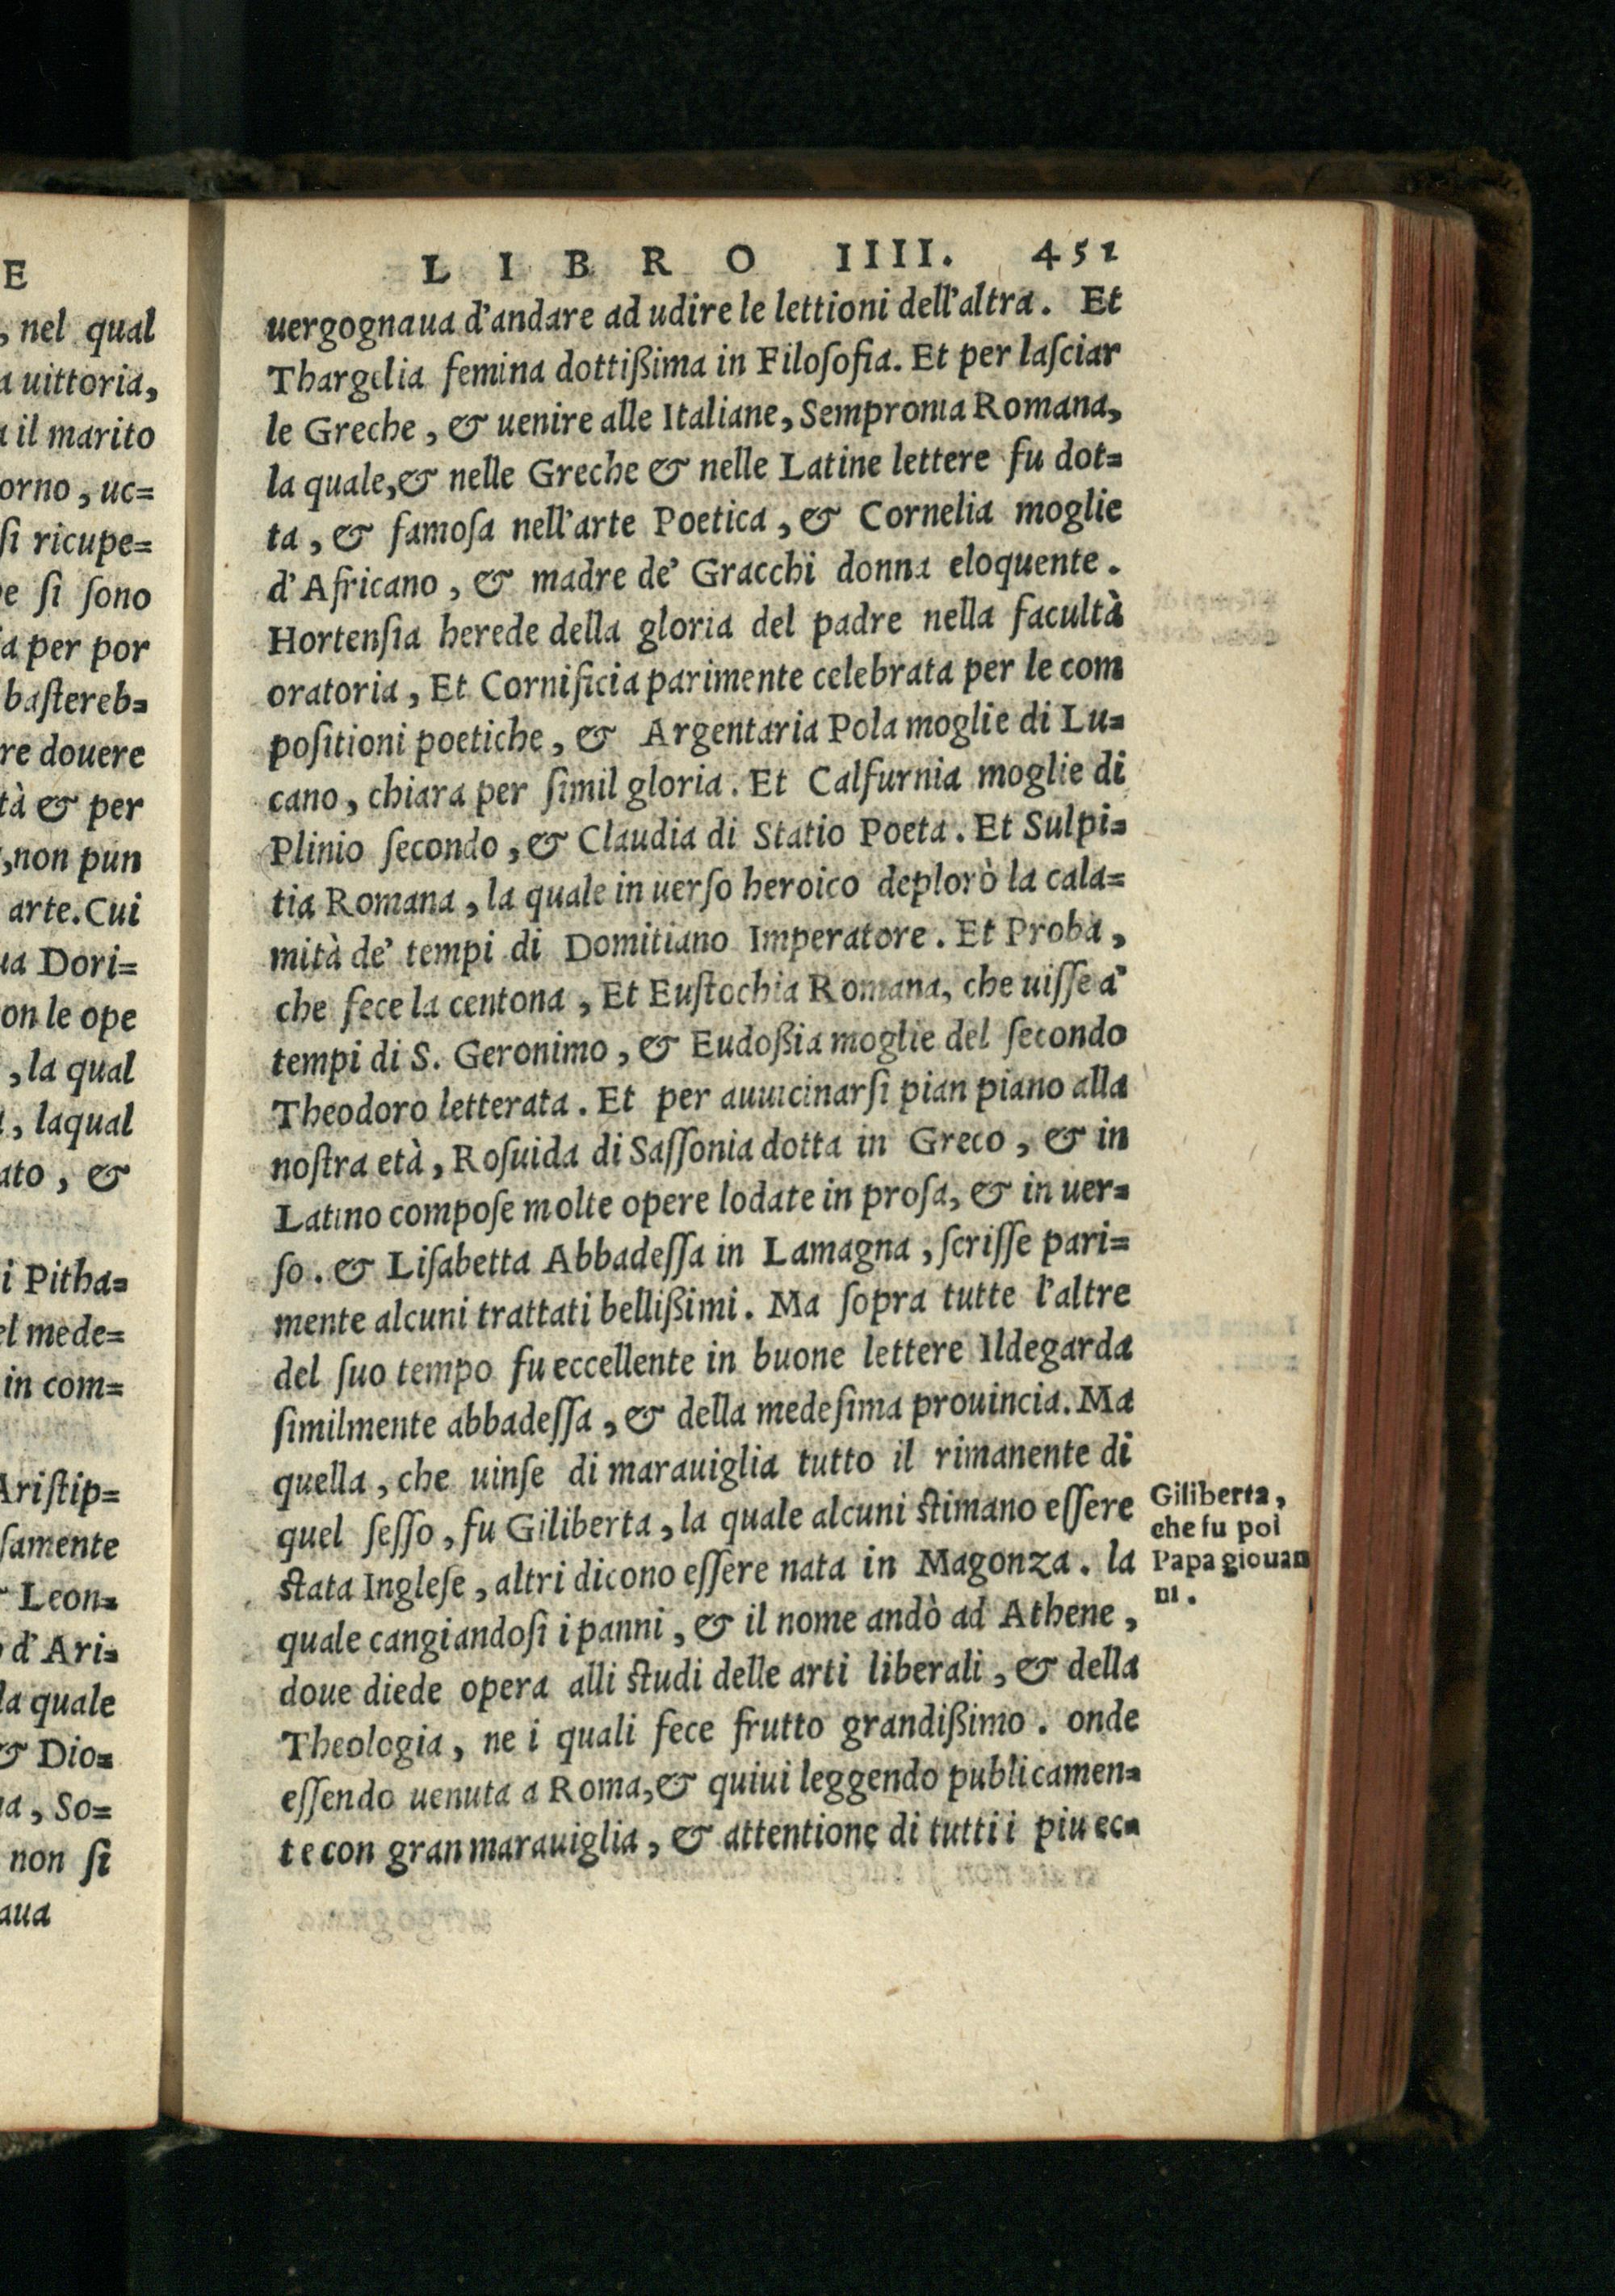 E
, nel qual
a uittoria,
il marito
orno, uc=
ſi ricupe=
e ſi ſono
a per por
baſtereb=
re douere
tà & per
,non pun
arte. Cui
ua Dori=
on le ope
, la qual
, laqual
ato, &
i Pitha=
el mede=
in com=
Ariſtip=
ſamente
Leon=
d'Ari=
la quale
& Dio=
a, So=
non ſi
aua
LIBRO IIII. 451
uergognaua d'andare ad udire le lettioni dell'altra. Et
Thargelia femina dottißima in Filoſofia. Et per laſciar
le Greche, & uenire alle Italiane, Sempronia Romana,
la quale, & nelle Greche & nelle Latine lettere fu dot=
ta, & famoſa nell'arte Poetica, & Cornelia moglie
d'Africano, & madre de' Gracchi donna eloquente.
Hortenſia herede della gloria del padre nella facultà
oratoria, Et Cornificia parimente celebrata per le com
poſitioni poetiche, & Argentaria Pola moglie di Lu=
cano, chiara per ſimil gloria. Et Calfurnia moglie di
Plinio ſecondo, & Claudia di Statio Poeta. Et Sulpi=
tia Romana, la quale in uerſo heroico deplorò la cala=
mità de' tempi di Domitiano Imperatore. Et Proba,
che fece la centona, Et Euſtochia Romana, che uiſſe a'
tempi di S. Geronimo, & Eudoßia moglie del ſecondo
Theodoro letterata. Et per auuicinarſi pian piano alla
noſtra età, Roſuida di Saſſonia dotta in Greco, & in
Latino compoſe molte opere lodate in proſa, & in uer=
ſo. & Liſabetta Abbadeſſa in Lamagna, ſcriſſe pari=
mente alcuni trattati bellißimi. Ma ſopra tutte l'altre
del ſuo tempo fu eccellente in buone lettere Ildegarda
ſimilmente abbadeſſa, & della medeſima prouincia. Ma
quella, che uinſe di marauiglia tutto il rimanente di
quel ſeſſo, fu Giliberta, la quale alcuni ſtimano eſſere
ſtata Ingleſe, altri dicono eſſere nata in Magonza. la
quale cangiandoſi i panni, & il nome andò ad Athene,
doue diede opera alli ſtudi delle arti liberali, & della
Theologia, ne i quali fece frutto grandißimo. onde
eſſendo uenuta a Roma, & quiui leggendo publicamen=
te con gran marauiglia, & attentione di tutti i piu ec=
Giliberta,
che fu poi
Papa giouan
ni.